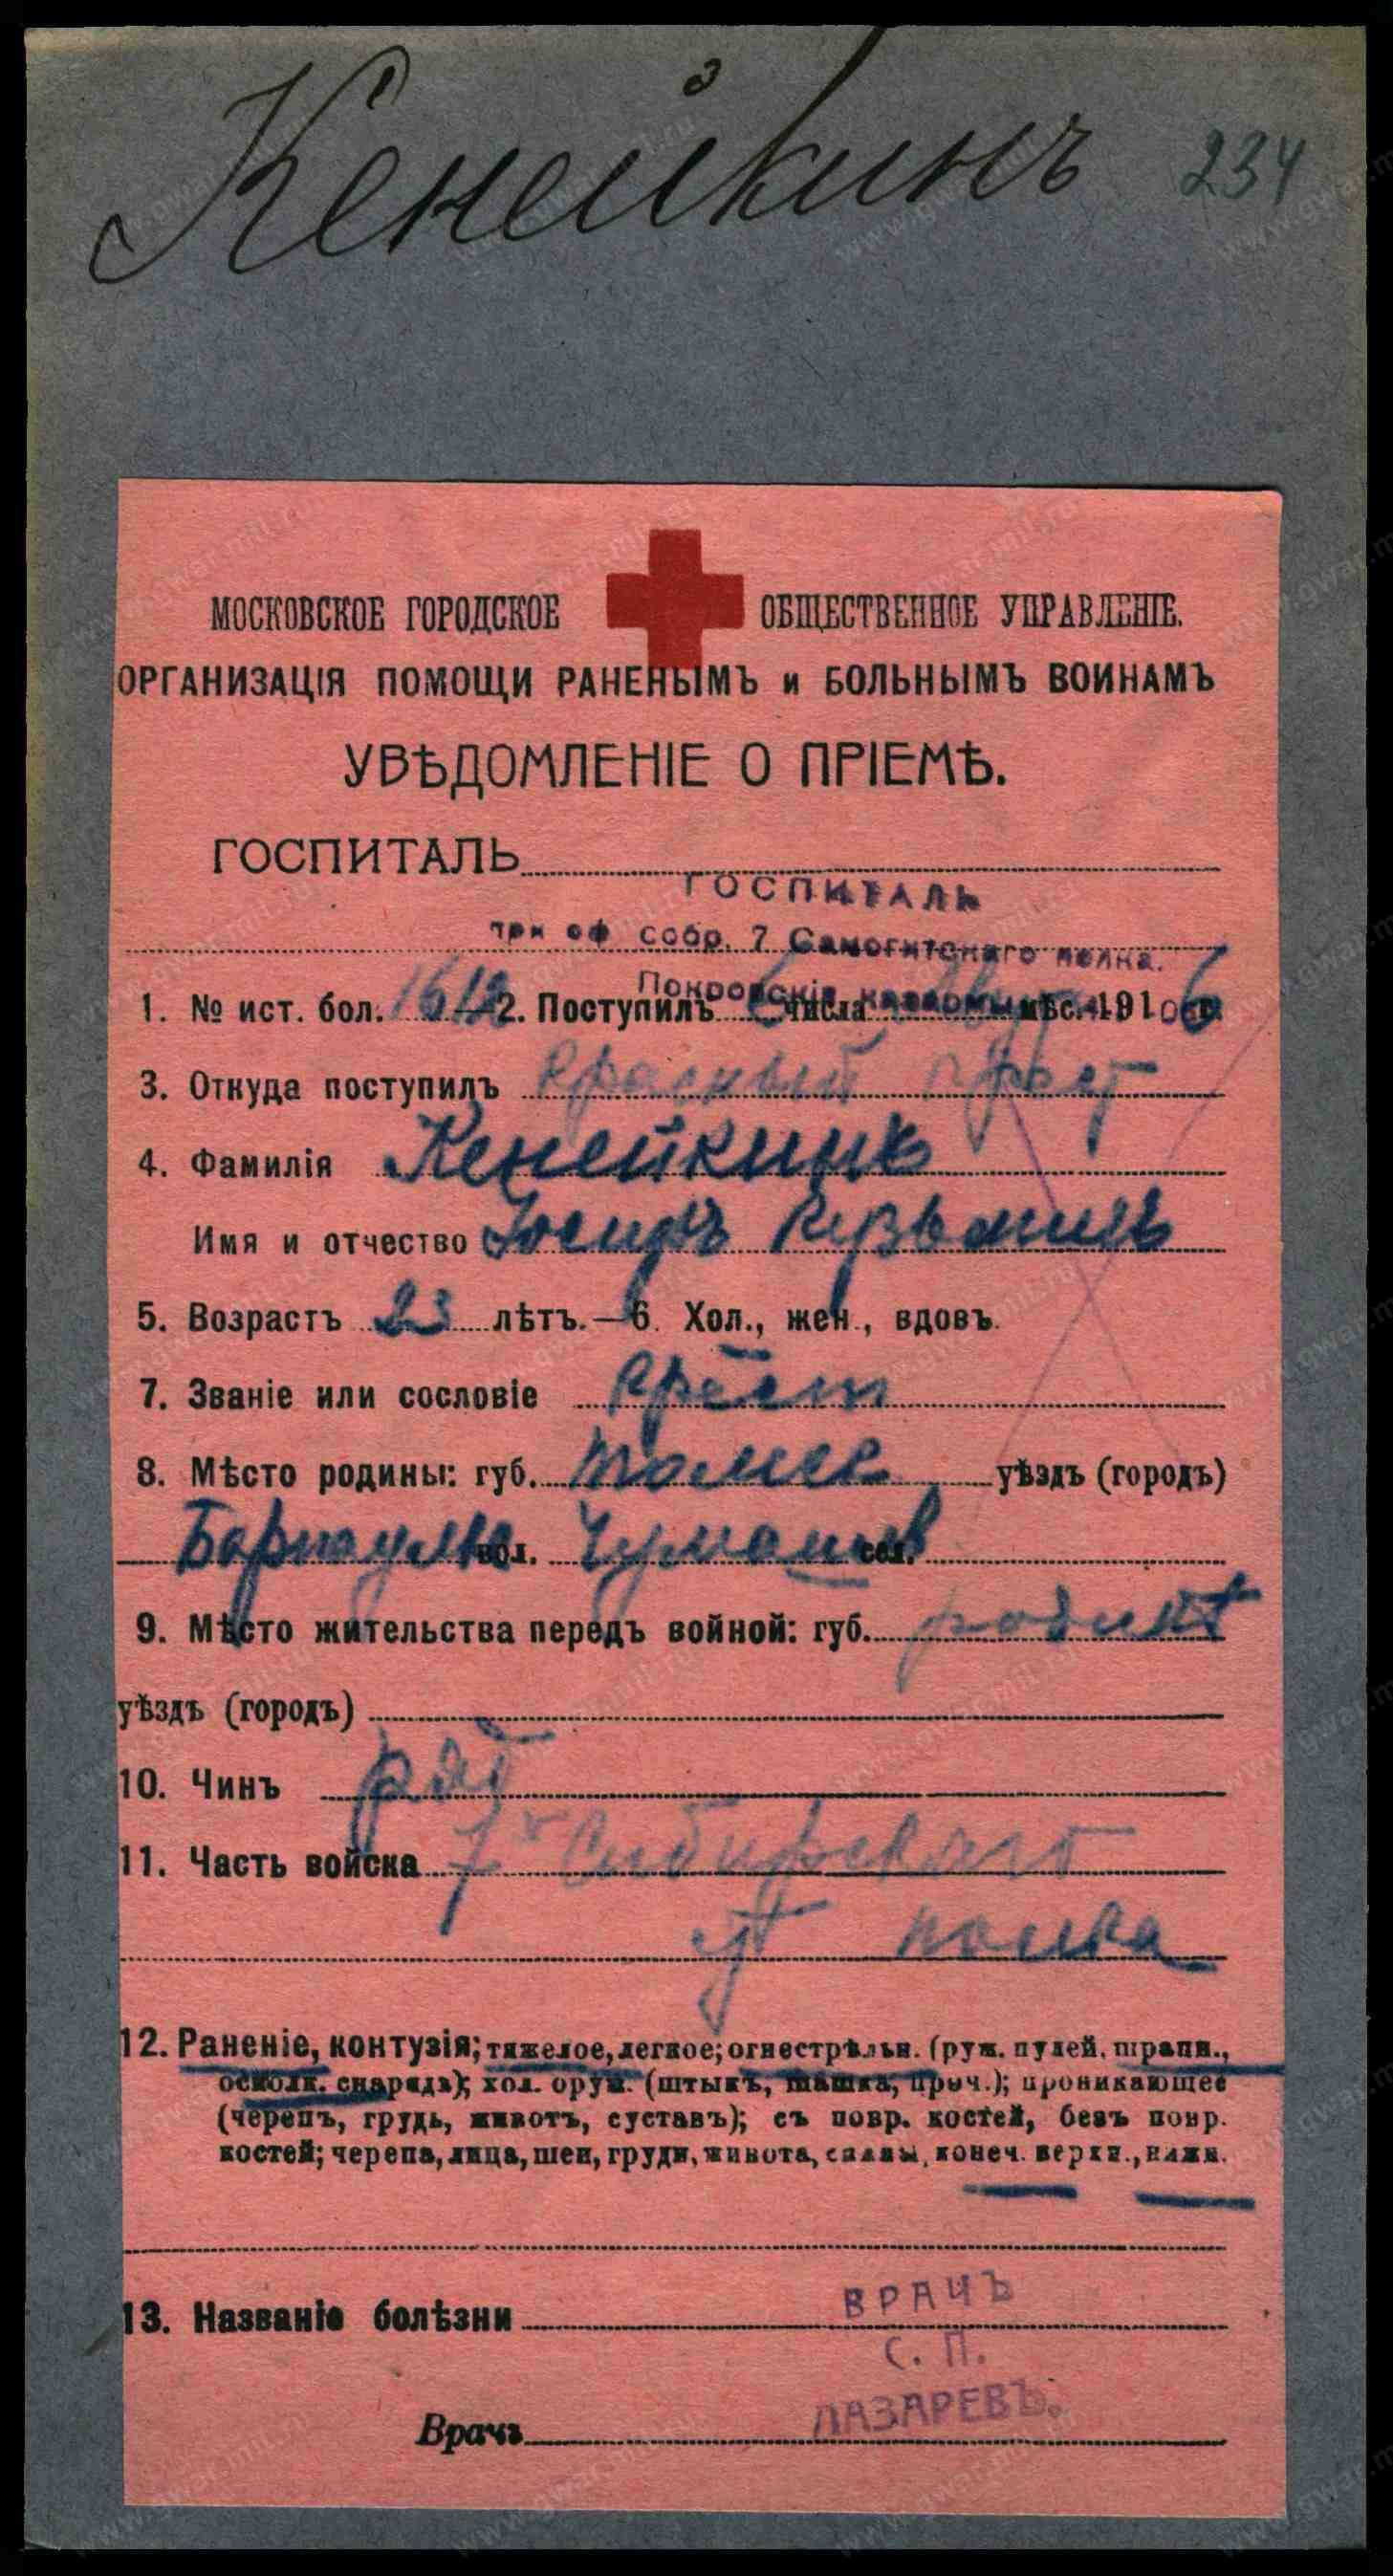 Кенейкинъ 234
МОСКОВСКОЕ ГОРОДСКОЕ ОБЩЕСТВЕННОЕ УПРАВЛЕНІЕ.
ОРГАНИЗАЦІЯ ПОМОЩИ РАНЕНЫМЪ и БОЛЬНЫМЪ ВОИНАМЪ
УВѢДОМЛЕНІЕ О ПРІЕМѢ.
ГОСПИТАЛЬ
ГОСПИТАЛЬ
три оф собр. 7 Самогитскаго полка.
Покровскія казармы
1. № ист. бол. 2. Поступилъ числа мѣс. 191 6 г.
3. Откуда поступилъ Красный крест
4. Фамилія Кенейкинъ
Имя и отчество Іосифъ Кузьмичъ
5. Возрастъ 23 лѣтъ.—6. Хол., жен., вдовъ.
7. Званіе или сословіе крест
8. Мѣсто родины: губ. Томск уѣздъ (городъ)
Барнаулъ вол. сел.
9. Мѣсто жительства передъ войной: губ. родинѣ
уѣздъ (городъ)
10. Чинъ ряд
11. Часть войска 7 Сибирскаго
полка
12. Раненіе, контузія; тяжелое, легкое; огнестрѣльн. (руж. пулей, шрапн.,
осколк. снаряда); хол. оруж. (штыкъ, шашка, проч.); проникающее
(черепъ, грудь, животъ, суставъ); съ повр. костей, безъ повр.
костей; черепа, лица, шеи, груди, живота, спины, конеч. верхн., нижн.
13. Названіе болѣзни
ВРАЧЪ
С. П.
ЛАЗАРЕВЪ.
Врачъ
www.gwar.mil.ru